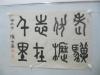 老驥
伏櫪
志在
千里